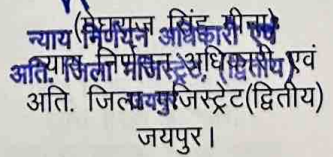 (मेघराज सिंह मीना)
न्याय निर्णयन अधिकारी एवं
अति. जिला मजिस्ट्रेट, (द्वितीय)
जयपुर
न्याय निर्णयन अधिकारी एवं
अति. जिला मजिस्ट्रेट(द्वितीय)
जयपुर।